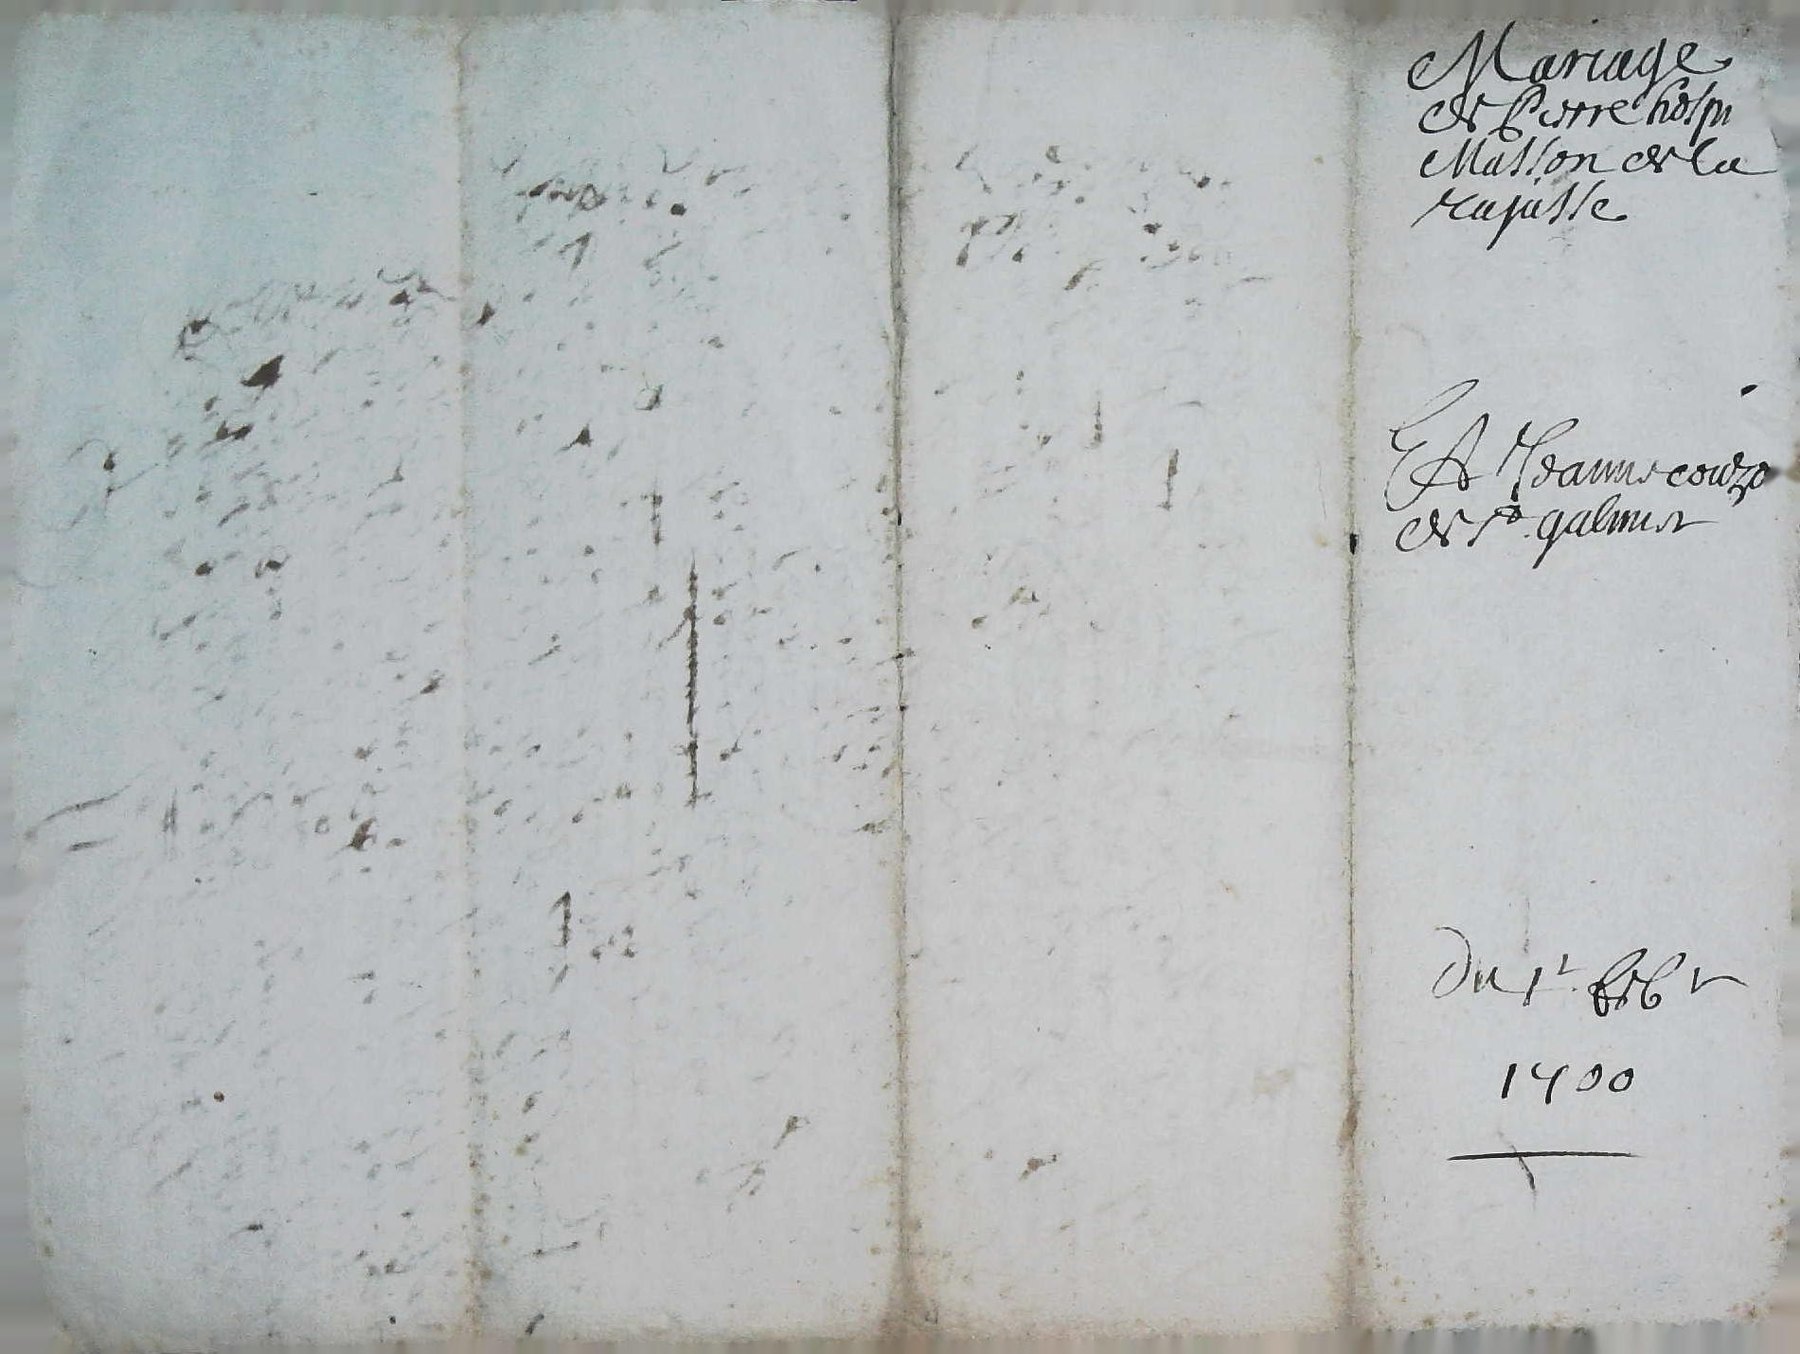 Mariage
de Pierre hospi
Masson de la
rajasse
Et Jeanne couzo
de st galmier
Du 1r febr
1700